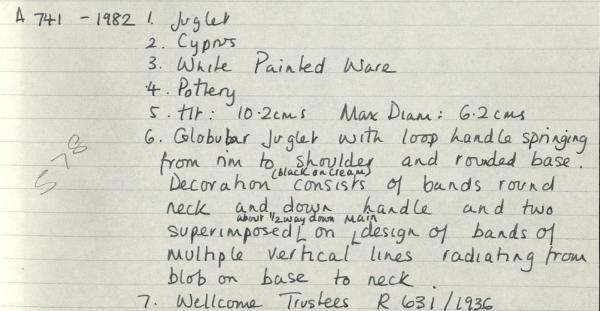 A 741 - 1982 1. Juglet
2. Cyprus
3. White Painted Ware
4. Pottery
5. Ht: 10.2cms Max Diam: 6.2cms
6. Globular Juglet with loop handle springing
from rim to shoulder and rounded base.
(black on cream)
Decoration consists of bands round
neck and down handle and two
about 1/2 way down main
superimposed on design of bands of
multiple vertical lines radiating from
blob on base to neck.
7. Wellcome Trustees R 631/1936
578